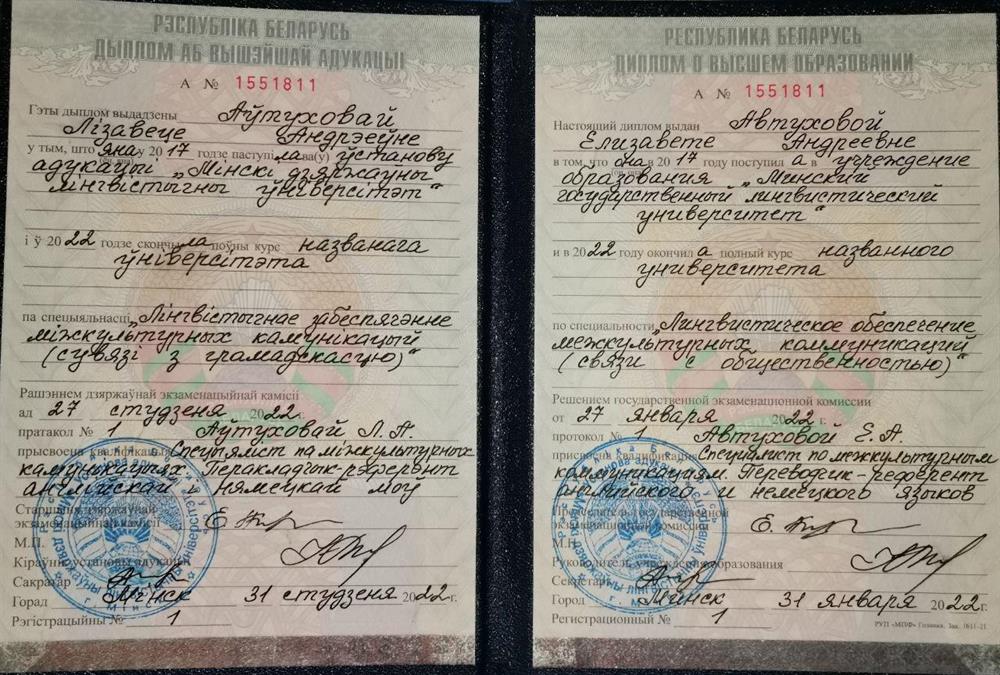 РЭСПУБЛІКА БЕЛАРУСЬ
ДЫПЛОМ АБ ВЫШЭЙШАЙ АДУКАЦЫІ
А № 1551811
Гэты дыплом выдадзены Аўтуховай
Лізавеце Андрэеўне
у тым, што яна у 2017 годзе паступіла ва(у) ўстанову
адукацыі „Мінскі дзяржаўны
лінгвістычны ўніверсітэт“
і ў 2022 годзе скончыла поўны курс названага
ўніверсітэта
па спецыяльнасці „Лінгвістычнае забеспячэнне
міжкультурных камунікацый
(сувязі з грамадскасцю)“
Рашэннем дзяржаўнай экзаменацыйнай камісіі
ад 27 студзеня 2022 г.
пратакол № 1 Аўтуховай Л. А.
прысвоена кваліфікацыя Спецыяліст па міжкультурных
камунікацыях. Перакладчык-рэферэнт
англійскай і нямецкай моў
Старшыня дзяржаўнай
экзаменацыйнай камісіі
М.П.
Кіраўнік установы адукацыі
Сакратар
Горад Мінск 31 студзеня 2022 г.
Рэгістрацыйны № 1
РЕСПУБЛИКА БЕЛАРУСЬ
ДИПЛОМ О ВЫСШЕМ ОБРАЗОВАНИИ
А № 1551811
Настоящий диплом выдан Автуховой
Елизавете Андреевне
в том, что она в 2017 году поступила в учреждение
образования „Минский
государственный лингвистический
университет“
и в 2022 году окончила полный курс названного
университета
по специальности „Лингвистическое обеспечение
межкультурных коммуникаций
(связи с общественностью)“
Решением государственной экзаменационной комиссии
от 27 января 2022 г.
протокол № 1 Автуховой Е. А.
присвоена квалификация Специалист по межкультурным
коммуникациям. Переводчик-референт
английского и немецкого языков
Председатель государственной
экзаменационной комиссии
М.П.
Руководитель учреждения образования
Секретарь
Город Минск 31 января 2022 г.
Регистрационный № 1
РУП «МПФ» Гознака. Зак. 1611-21